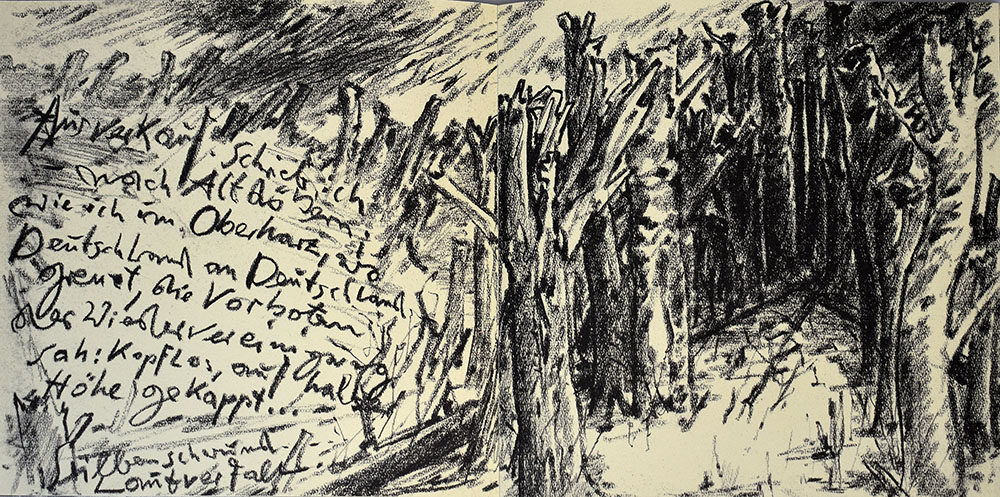 Ausverkauf. Schrieb ich
nach Altdöbern:
wie ich im Oberharz, wo
Deutschland an Deutschland
grenzt, die Vorboten
der Wiedervereinigung
sah: Kopflos, auf halber
Höhe gekappt...
Silbenschwund.
Lautverfall.